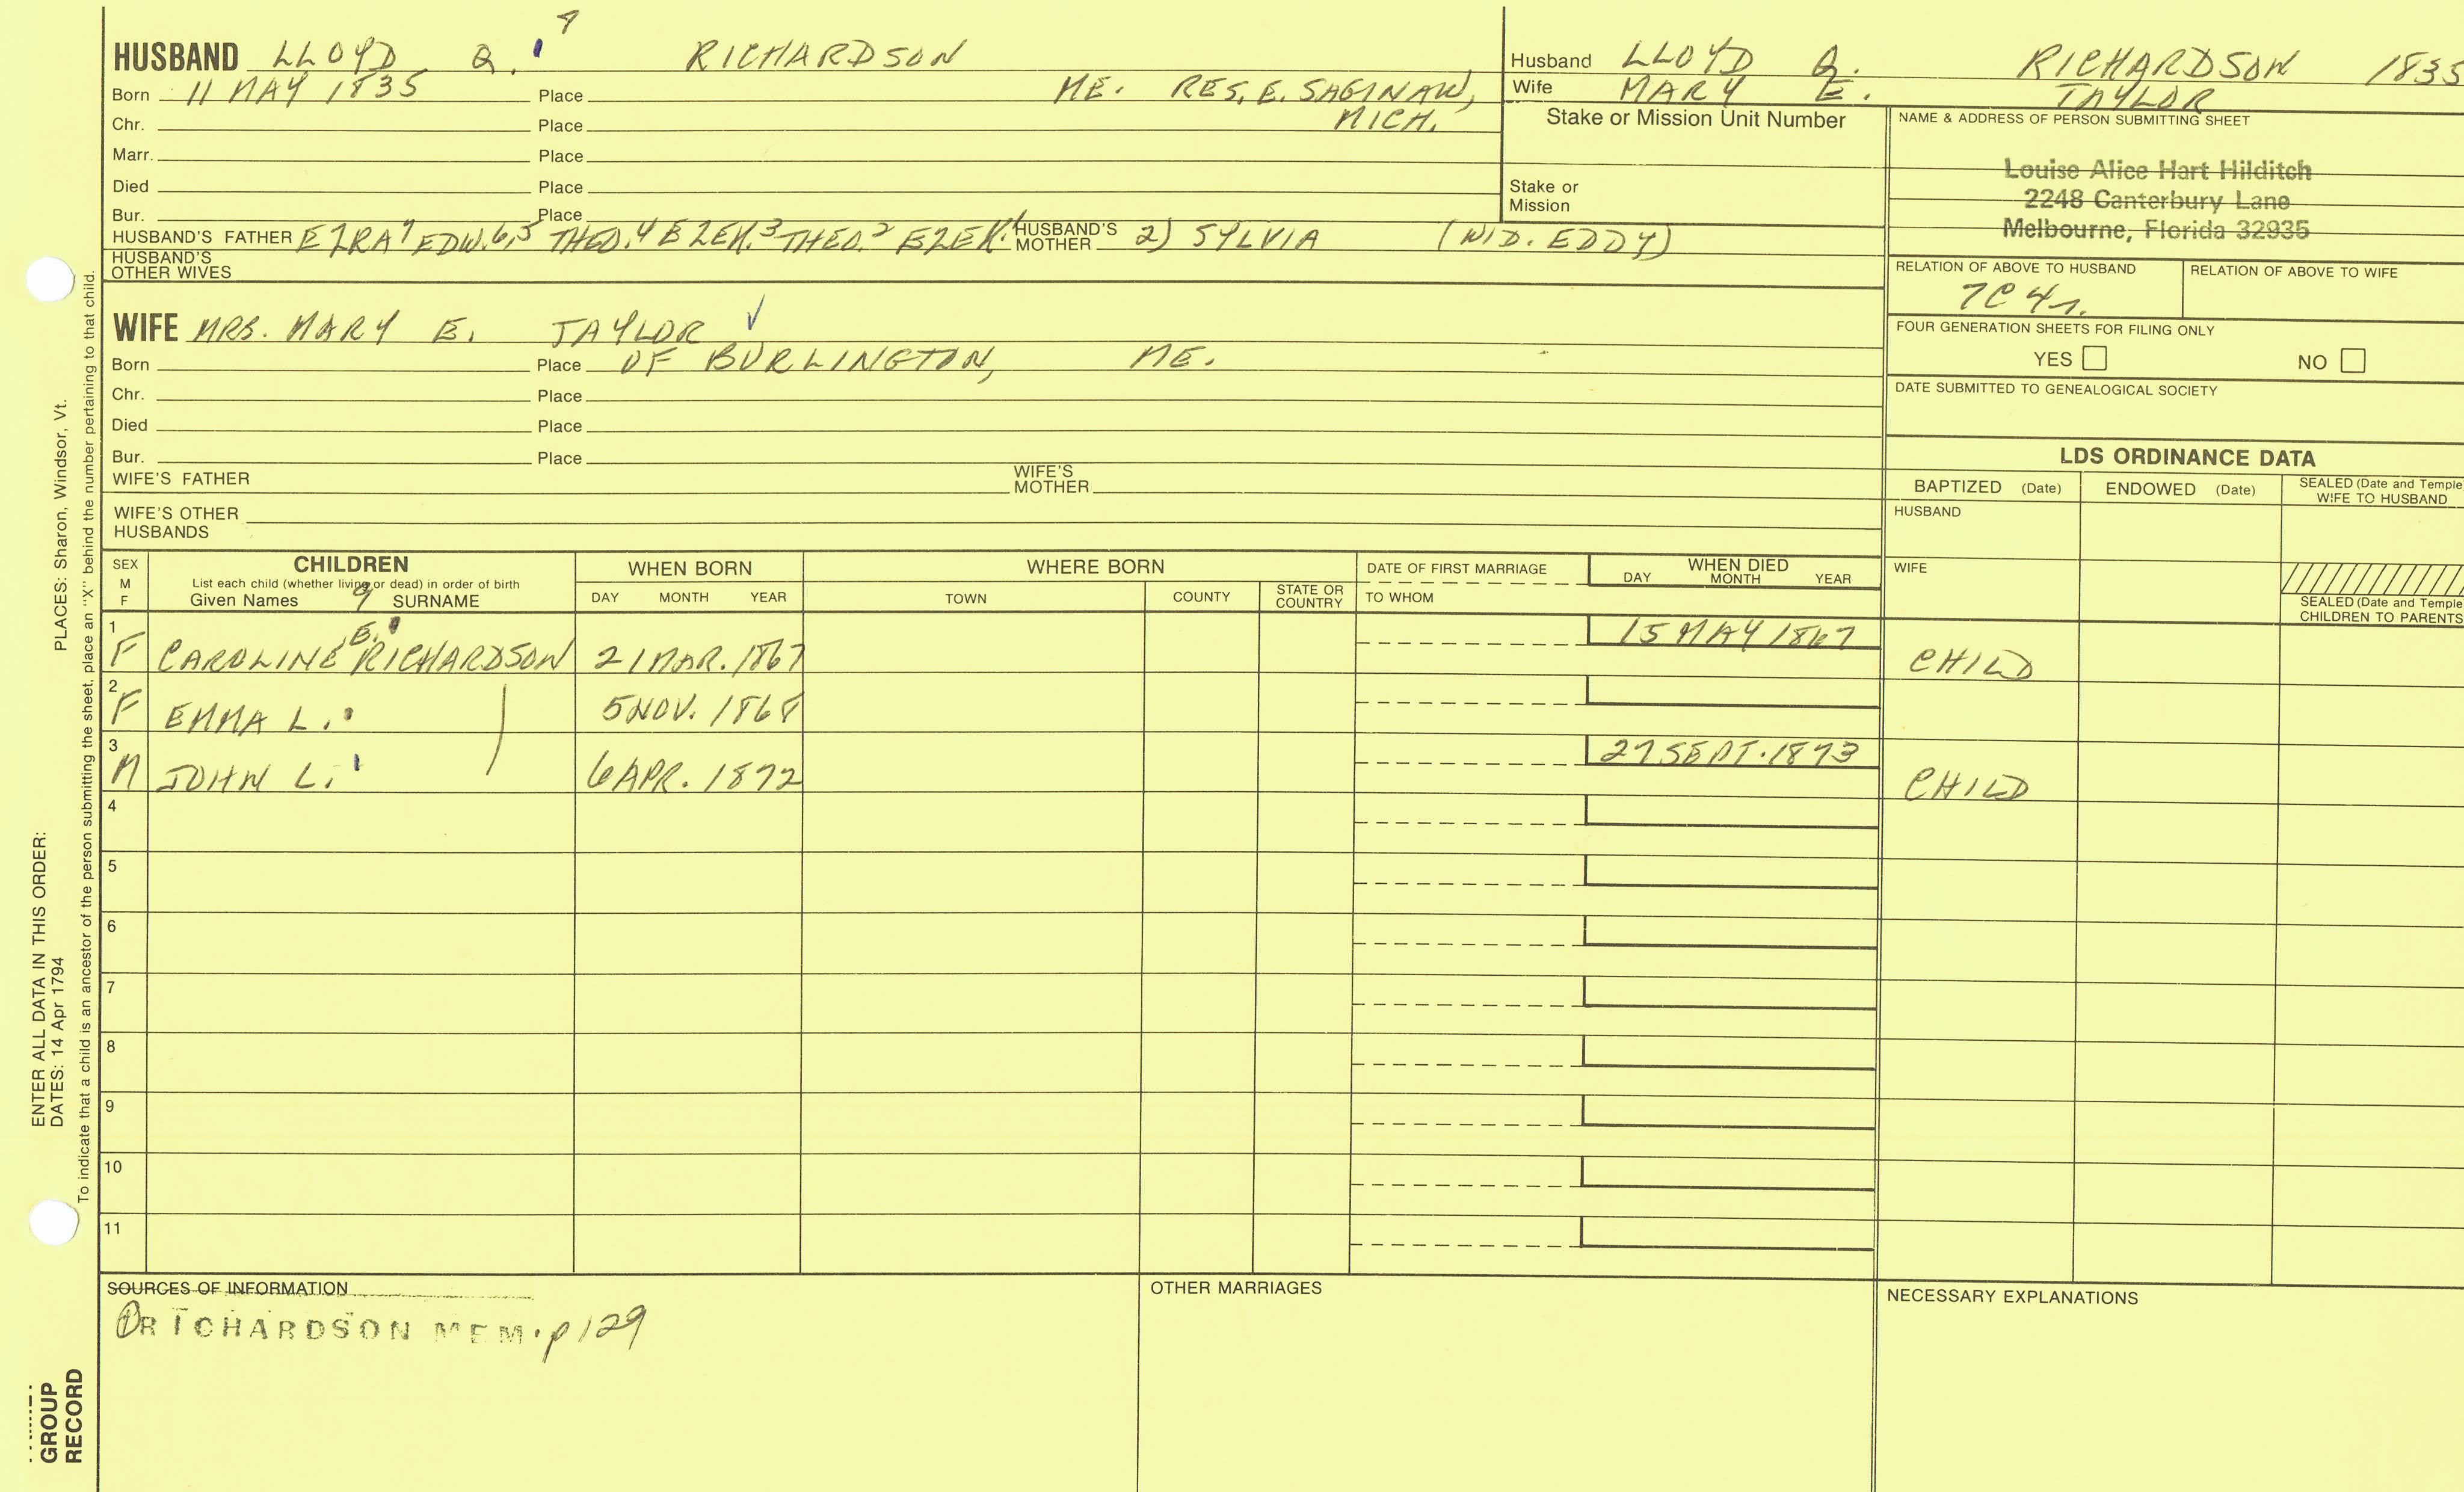 HUSBAND LLOYD Q. 8 RICHARDSON
Born 11 MAY 1835 Place ME. RES. E. SAGINAW,
Chr. Place MICH.
Marr. Place
Died Place
Bur. Place
HUSBAND'S FATHER EZRA7 EDW.6,5 THEO.4 EZEK.3 THEO.2 EZEK.1 HUSBAND'S MOTHER 2) SYLVIA (WID. EDDY)
HUSBAND'S OTHER WIVES
Husband LLOYD Q. RICHARDSON 1835
Wife MARY E. TAYLOR
Stake or Mission Unit Number
Stake or Mission
NAME & ADDRESS OF PERSON SUBMITTING SHEET
Louise Alice Hart Hilditch
2248 Canterbury Lane
Melbourne, Florida 32935
RELATION OF ABOVE TO HUSBAND RELATION OF ABOVE TO WIFE
7C 4r.
FOUR GENERATION SHEETS FOR FILING ONLY
YES NO
DATE SUBMITTED TO GENEALOGICAL SOCIETY
WIFE MRS. MARY E. TAYLOR ✓
Born Place OF BURLINGTON, ME.
Chr. Place
Died Place
Bur. Place
WIFE'S FATHER WIFE'S MOTHER
WIFE'S OTHER HUSBANDS
LDS ORDINANCE DATA
BAPTIZED (Date) ENDOWED (Date) SEALED (Date and Temple
WIFE TO HUSBAND
HUSBAND
WIFE
SEALED (Date and Temple
CHILDREN TO PARENTS
SEX M F
CHILDREN
List each child (whether living or dead) in order of birth
Given Names 9 SURNAME
WHEN BORN
DAY MONTH YEAR
WHERE BORN
TOWN COUNTY STATE OR COUNTRY
DATE OF FIRST MARRIAGE
TO WHOM
WHEN DIED
DAY MONTH YEAR
1 F CAROLINE E. RICHARDSON 21 MAR. 1867 15 MAY 1867 CHILD
2 F EMMA L. 5 NOV. 1868
3 M JOHN L. 6 APR. 1872 27 SEPT. 1873 CHILD
4
5
6
7
8
9
10
11
SOURCES OF INFORMATION
RICHARDSON MEM. p 129
OTHER MARRIAGES
NECESSARY EXPLANATIONS
ENTER ALL DATA IN THIS ORDER:
DATES: 14 Apr 1794 PLACES: Sharon, Windsor, Vt.
To indicate that a child is an ancestor of the person submitting the sheet, place an "X" behind the number pertaining to that child.
GROUP
RECORD